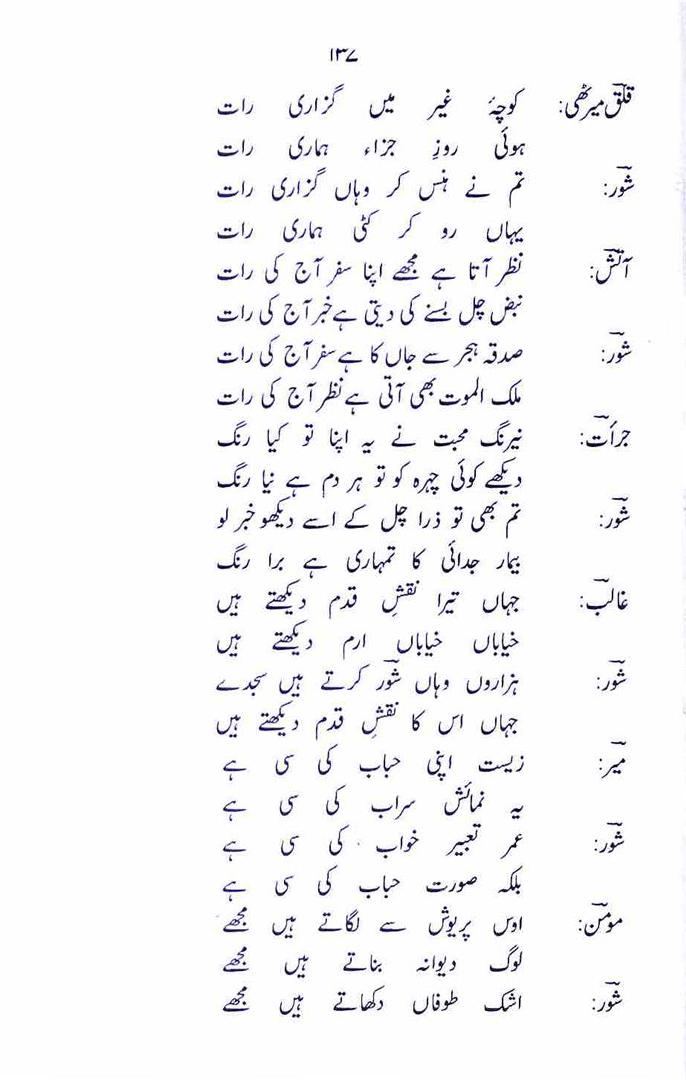 ۱۳۷
قلق میرٹھی: کوچۂ غیر میں گزاری رات
ہوئی روزِ جزاء ہماری رات
شور: تم نے ہنس کر وہاں گزاری رات
یہاں رو کر کٹی ہماری رات
آتش: نظر آتا ہے مجھے اپنا سفر آج کی رات
نبض چل بسنے کی دیتی ہے خبر آج کی رات
شور: صدقہ ہجر سے جاں کا ہے سفر آج کی رات
ملک الموت بھی آتی ہے نظر آج کی رات
جرأت: نیرنگ محبت نے یہ اپنا تو کیا رنگ
دیکھے کوئی چہرہ کو تو ہر دم ہے نیا رنگ
شور: تم بھی تو ذرا چل کے اسے دیکھو خبر لو
بیمار جدائی کا تمہاری ہے برا رنگ
غالب: جہاں تیرا نقشِ قدم دیکھتے ہیں
خیاباں خیاباں ارم دیکھتے ہیں
شور: ہزاروں وہاں شور کرتے ہیں سجدے
جہاں اس کا نقشِ قدم دیکھتے ہیں
میر: زیست اپنی حباب کی سی ہے
یہ نمائش سراب کی سی ہے
شور: عمر تعبیر خواب کی سی ہے
بلکہ صورت حباب کی سی ہے
مومن: اوس پریوش سے لگاتے ہیں مجھے
لوگ دیوانہ بناتے ہیں مجھے
شور: اشک طوفاں دکھاتے ہیں مجھے